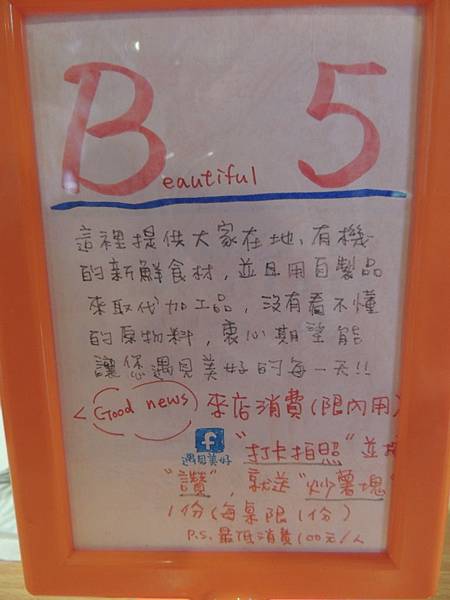 B 5
eautiful
這裡提供大家在地、有機
的新鮮食材，並且用自製品
來取代加工品，沒有看不懂
的原物料，衷心期望能
讓您遇見美好的每一天!!
<Good news> 來店消費(限內用)
f "打卡拍照"並按
遇見美好
"讚"，就送"炒薯塊"
1份(每桌限1份)
P.S. 最低消費100元/人